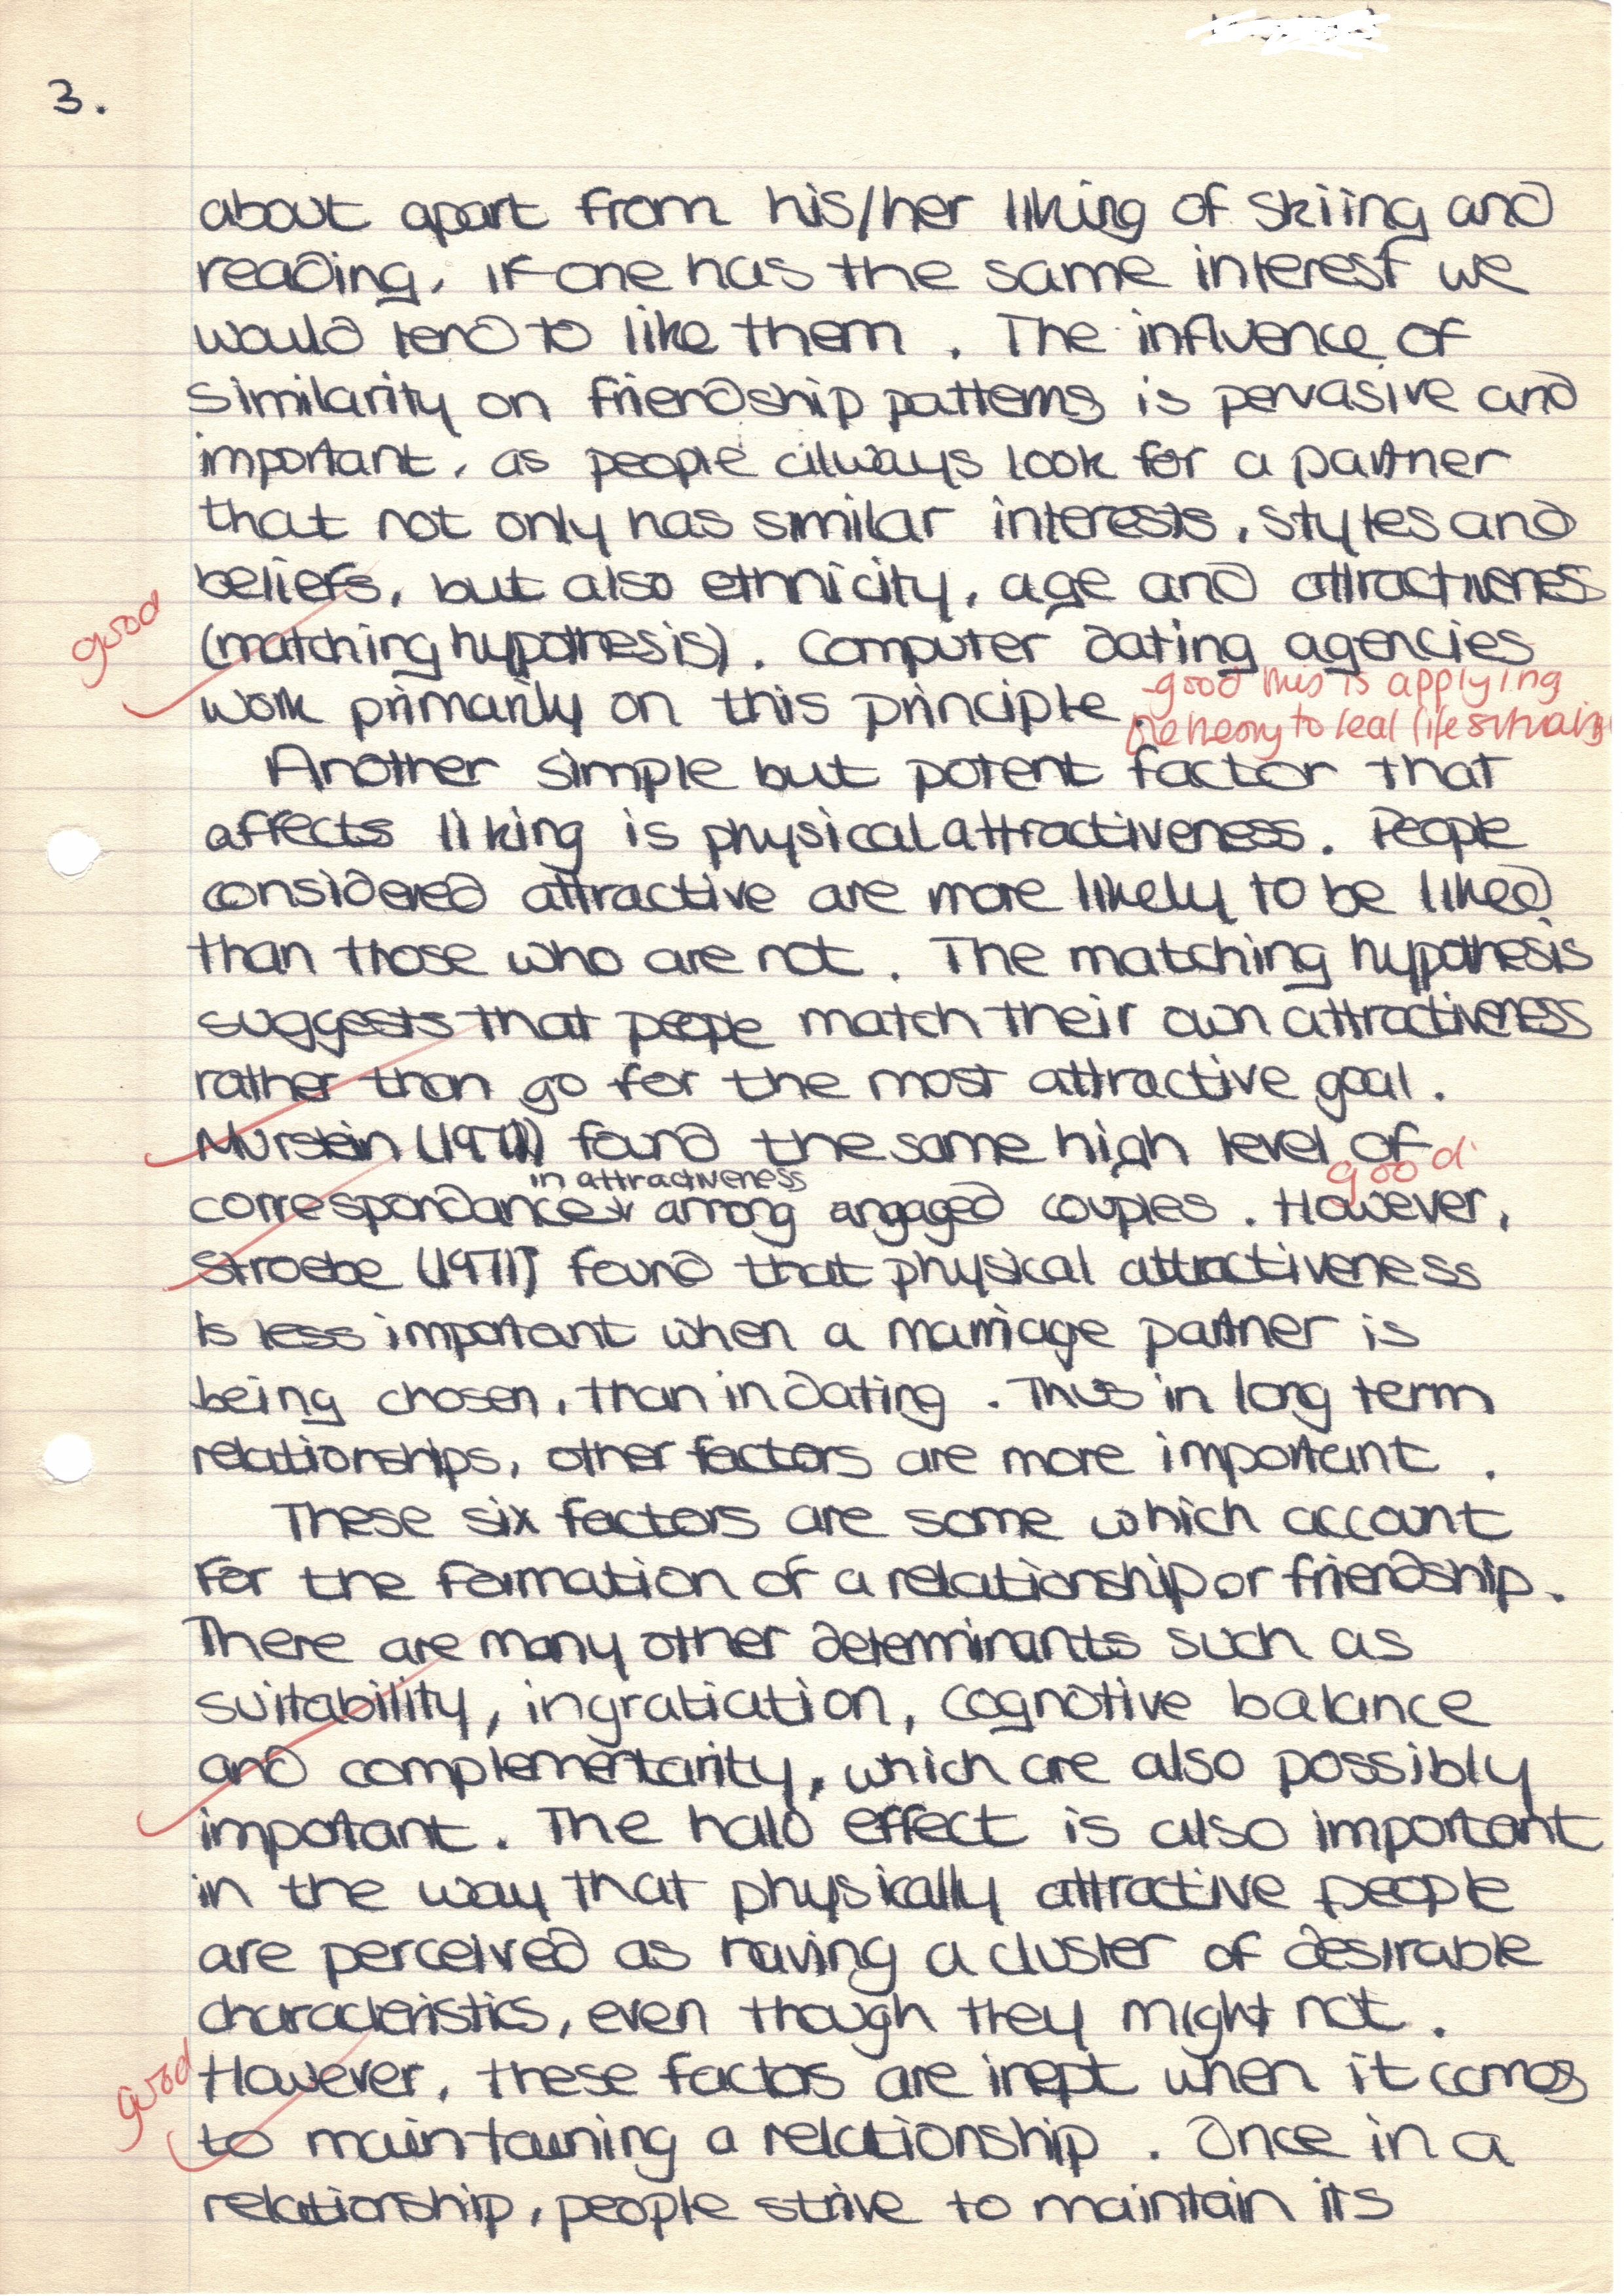 3.
about apart from his/her liking of skiing and
reading, if one has the same interest we
would tend to like them. The influence of
similarity on friendship patterns is pervasive and
important, as people always look for a partner
that not only has similar interests, styles and
beliefs, but also ethnicity, age and attractiveness
good
(matching hypothesis). Computer dating agencies
work primarily on this principle.
-good this is applying
the theory to real life situations
Another simple but potent factor that
affects liking is physical attractiveness. People
considered attractive are more likely to be liked
than those who are not. The matching hypothesis
suggests that people match their own attractiveness
rather than go for the most attractive goal.
Murstein (1971) found the same high level of
good
in attractiveness
correspondance among engaged couples. However,
Stroebe (1971) found that physical attractiveness
is less important when a marriage partner is
being chosen, than in dating. Thus in long term
relationships, other factors are more important.
These six factors are some which account
for the formation of a relationship or friendship.
There are many other determinants such as
suitability, ingratiation, cognotive balance
and complementarity, which are also possibly
important. The halo effect is also important
in the way that physically attractive people
are perceived as having a cluster of desirable
characteristics, even though they might not.
good
However, these factors are inept when it comes
to maintaining a relationship. Once in a
relationship, people strive to maintain its